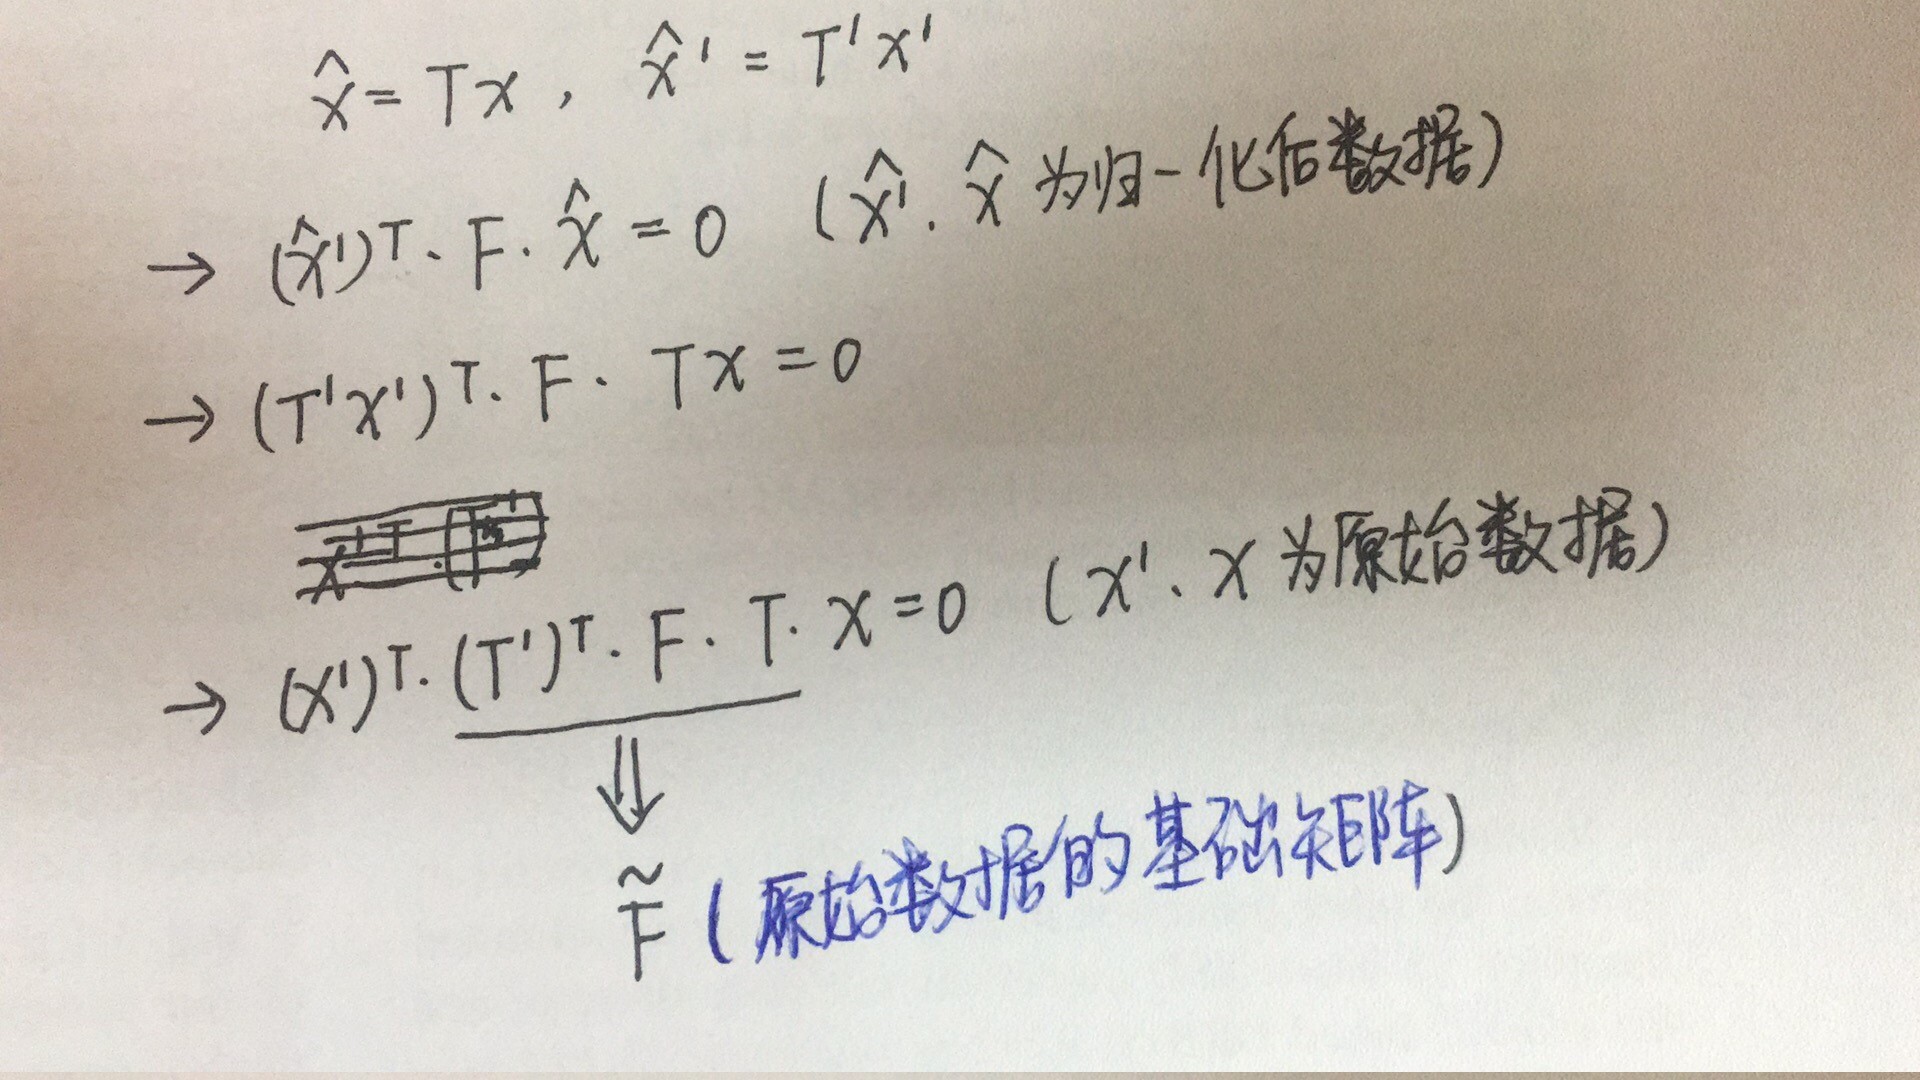 x̂ = Tx , x̂' = T'x'
→ (x̂')ᵀ · F · x̂ = 0 (x̂'、x̂ 为归一化后数据)
→ (T'x')ᵀ · F · Tx = 0
→ (x')ᵀ · (T')ᵀ · F · T · x = 0 (x'、x 为原始数据)
⇓
F̃ (原始数据的基础矩阵)